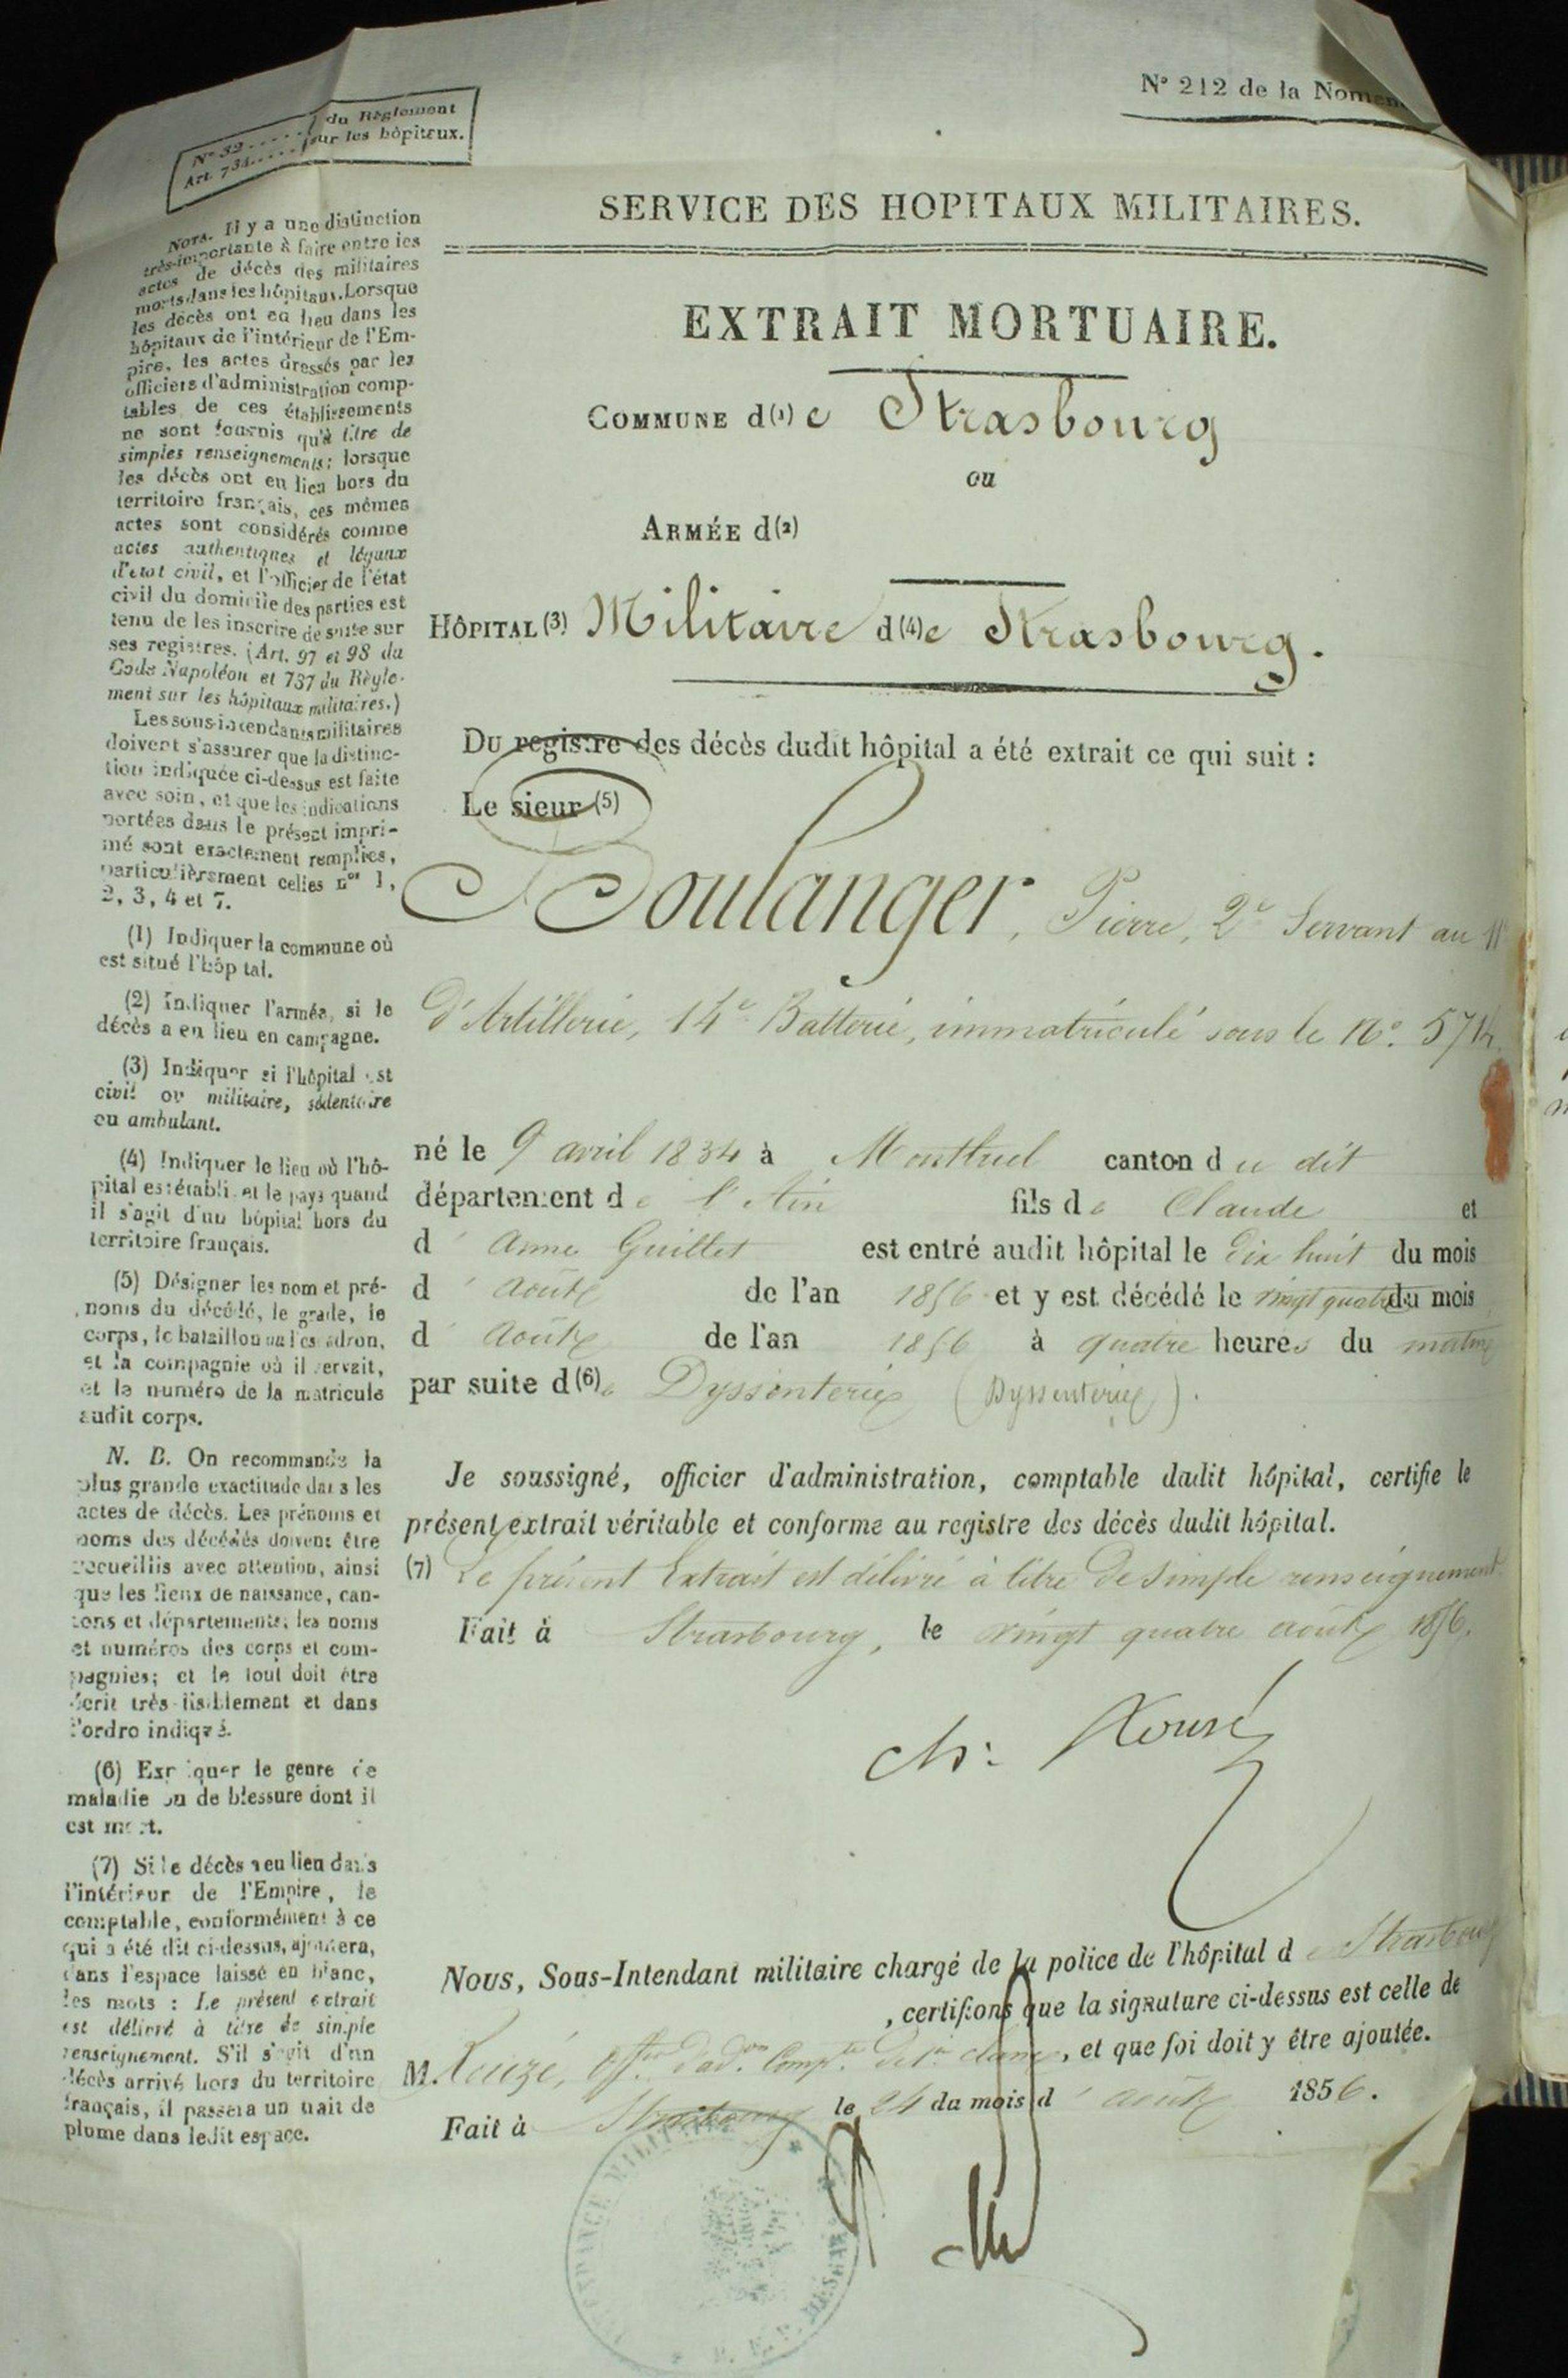 N° 212 de la Nomen
N° 32..... du Règlement
Art. 734..... sur les hôpitaux.
SERVICE DES HOPITAUX MILITAIRES.
EXTRAIT MORTUAIRE.
COMMUNE d(1) e Strasbourg
ou
ARMÉE d(2)
HÔPITAL (3) Militaire d(4)e Strasbourg.
Du registre des décès dudit hôpital a été extrait ce qui suit :
Le sieur (5)
Boulanger, Pierre, 2e Servant au 11
d'Artillerie, 14e Batterie, immatriculé sous le No. 5714.
né le 9 avril 1834 à Montluel canton du dit
département de l'Ain fils de Claude et
d' Anne Guillet est entré audit hôpital le dix huit du mois
d' août de l'an 1856 et y est décédé le vingt quatre du mois
d' août de l'an 1856 à quatre heures du matin
par suite d(6)e Dyssenterie (Dyssenterie).
Je soussigné, officier d'administration, comptable dudit hôpital, certifie le
présent extrait véritable et conforme au registre des décès dudit hôpital.
(7) Le présent Extrait est délivré à titre de simple renseignement
Fait à Strasbourg, le vingt quatre août 1856.
Nous, Sous-Intendant militaire chargé de la police de l'hôpital de Strasbourg
, certifions que la signature ci-dessus est celle de
M. offer d'adon Compte de 1re classe, et que foi doit y être ajoutée.
Fait à Strasbourg le 24 du mois d' août 1856.
NOTA. Il y a une distinction
très-importante à faire entre les
actes de décès des militaires
morts dans les hôpitaux. Lorsque
les décès ont eu lieu dans les
hôpitaux de l'intérieur de l'Em-
pire, les actes dressés par les
officiers d'administration comp-
tables de ces établissements
ne sont fournis qu'à titre de
simples renseignements; lorsque
les décès ont eu lieu hors du
territoire français, ces mêmes
actes sont considérés comme
actes authentiques et légaux
d'état civil, et l'officier de l'état
civil du domicile des parties est
tenu de les inscrire de suite sur
ses registres. (Art. 97 et 98 du
Code Napoléon et 737 du Règle-
ment sur les hôpitaux militaires.)
Les sous-intendants militaires
doivent s'assurer que la distinc-
tion indiquée ci-dessus est faite
avec soin, et que les indications
portées dans le présent impri-
mé sont exactement remplies,
particulièrement celles nos 1,
2, 3, 4 et 7.
(1) Indiquer la commune où
est situé l'hôpital.
(2) Indiquer l'armée, si le
décès a eu lieu en campagne.
(3) Indiquer si l'hôpital est
civil ou militaire, sédentaire
ou ambulant.
(4) Indiquer le lieu où l'hô-
pital est établi et le pays quand
il s'agit d'un hôpital hors du
territoire français.
(5) Désigner les nom et pré-
noms du décédé, le grade, le
corps, le bataillon ou l'escadron,
et la compagnie où il servait,
et le numéro de la matricule
audit corps.
N. B. On recommande la
plus grande exactitude dans les
actes de décès. Les prénoms et
noms des décédés doivent être
recueillis avec attention, ainsi
que les lieux de naissance, can-
tons et départements; les noms
et numéros des corps et com-
pagnies; et le tout doit être
écrit très-lisiblement et dans
l'ordre indiqué.
(6) Expliquer le genre de
maladie ou de blessure dont il
est mort.
(7) Si le décès a eu lieu dans
l'intérieur de l'Empire, le
comptable, conformément à ce
qui a été dit ci-dessus, ajoutera,
dans l'espace laissé en blanc,
les mots : Le présent extrait
est délivré à titre de simple
renseignement. S'il s'agit d'un
décès arrivé hors du territoire
français, il passera un trait de
plume dans ledit espace.